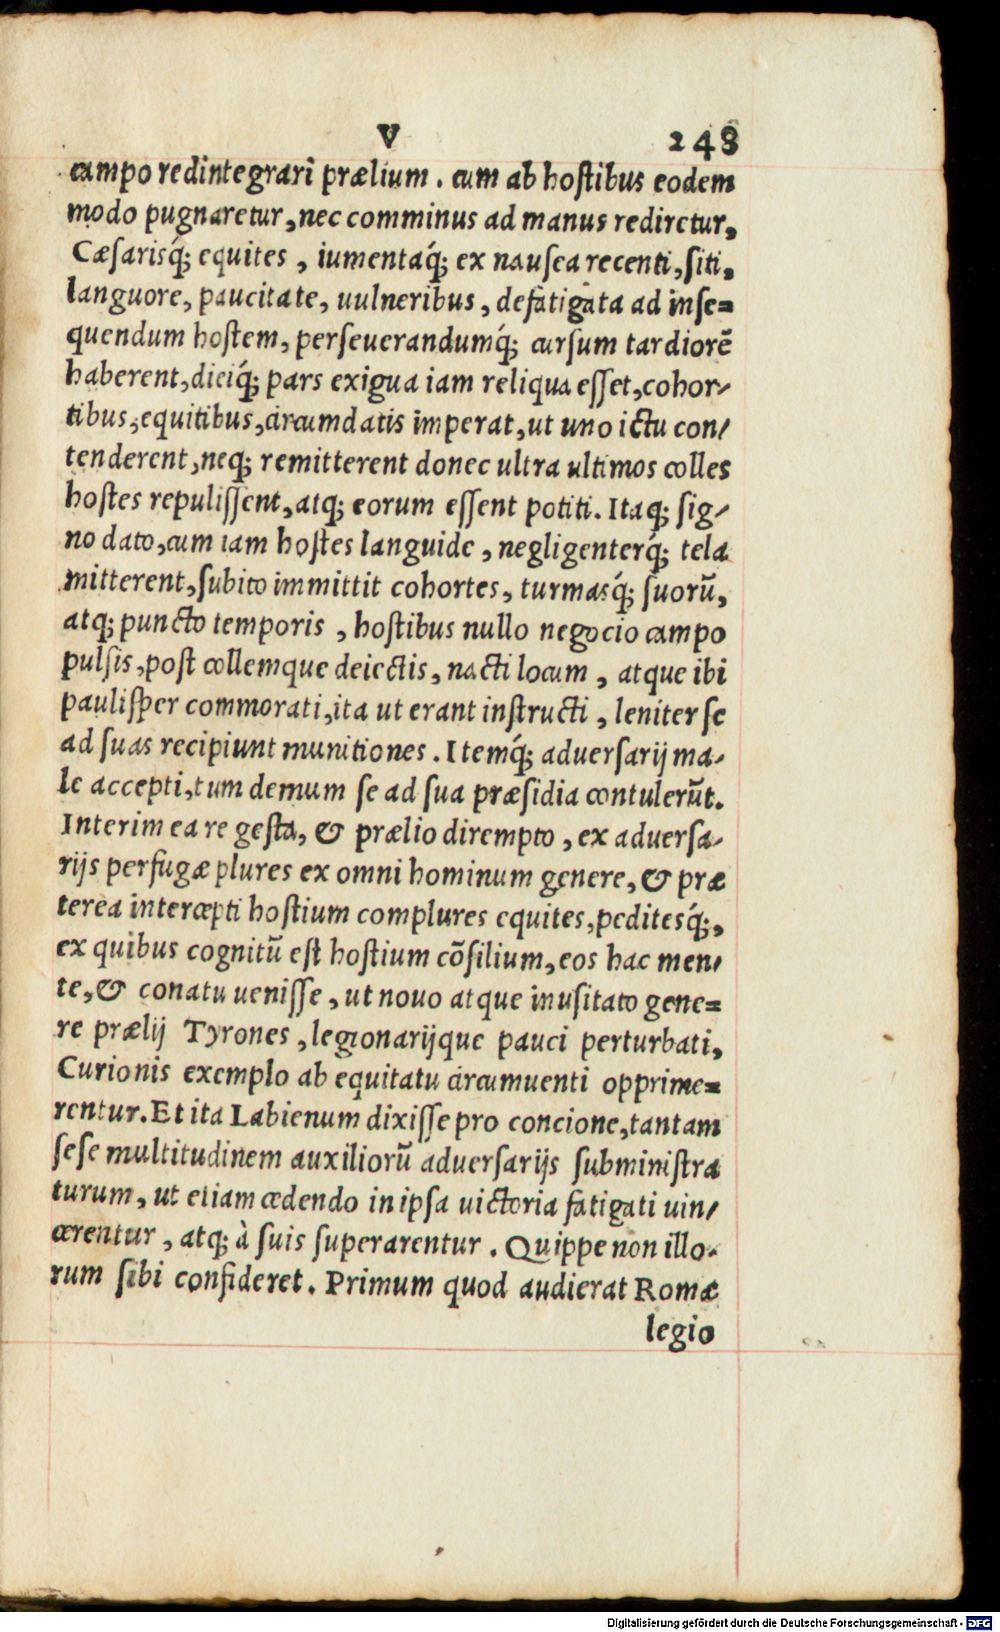 V 248
campo redintegrari prælium. cum ab hostibus eodem
modo pugnaretur, nec comminus ad manus rediretur,
Cæsarisq́; equites, iumentaq́; ex nausea recenti, siti,
languore, paucitate, uulneribus, defatigata ad inse=
quendum hostem, perseuerandumq́; cursum tardiorẽ
haberent, dieiq́; pars exigua iam reliqua esset, cohor-
tibus, equitibus, circumdatis imperat, ut uno ictu con-
tenderent, neq; remitterent donec ultra ultimos colles
hostes repulissent, atq; eorum essent potiti. Itaq; sig-
no dato, cum iam hostes languide, negligenterq́; tela
mitterent, subito immittit cohortes, turmasq́; suorũ,
atq; puncto temporis, hostibus nullo negocio campo
pulsis, post collemque deiectis, nacti locum, atque ibi
paulisper commorati, ita ut erant instructi, leniter se
ad suas recipiunt munitiones. Itemq́; aduersarij ma-
le accepti, tum demum se ad sua præsidia contulerũt.
Interim ea re gesta, & prælio dirempto, ex aduersa-
rijs perfugæ plures ex omni hominum genere, & præ
terea intercepti hostium complures equites, peditesq́;,
ex quibus cognitũ est hostium cõsilium, eos hac men-
te, & conatu uenisse, ut nouo atque inusitato gene=
re prælij Tyrones, legionarijque pauci perturbati,
Curionis exemplo ab equitatu circumuenti opprime=
rentur. Et ita Labienum dixisse pro concione, tantam
sese multitudinem auxiliorũ aduersarijs subministra
turum, ut etiam cedendo in ipsa uictoria fatigati uin-
cerentur, atq; à suis superarentur. Quippe non illo-
rum sibi confideret. Primum quod audierat Romæ
legio
Digitalisierung gefördert durch die Deutsche Forschungsgemeinschaft - DFG